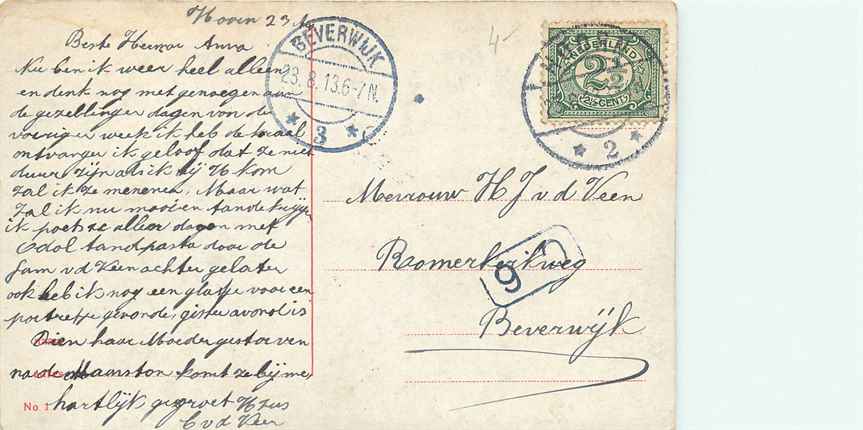 Hoorn 23 A
Beste Heer en Anna
Nu ben ik weer heel alleen
en denk nog met genoegen aan
de gezelliger dagen van de
voorigen week ik heb de
ontvangen ik geloof dat ze niet
duur zijn als ik bij U kom
zal ik ze meneme, Maar wat
zal ik nu mooi en tande krijge
ik poets ze aller dagen met
Odol tandpasta door de
fam v d Veen achter gelater
ook heb ik nog een glasje voor een
portretje gevonde, gister avond is
Dien haar Moeder gestorven
na de komt ze bij me
hartlijk gegroet
C v d Veer
No 1
BEVERWIJK
23.8.13.6-7 N.
* 3 *
4-
NEDERLAND
2½
2½ CENT
* 2 *
Mevrouw H J v d Veen
Romerkerkweg
Beverwijk